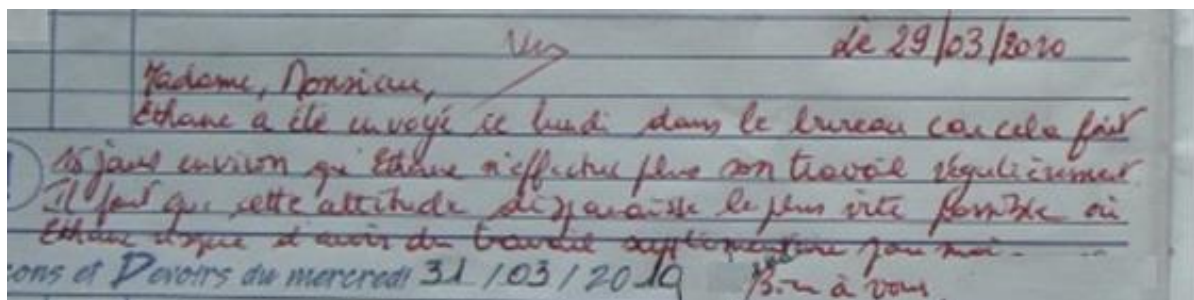 Vu Le 29/03/2010
Madame, Monsieur,
Ethane a été envoyé ce lundi dans le bureau car cela fait
15 jours environ qu'Ethane n'effectue plus son travail régulièrement
Il faut que cette attitude disparaisse le plus vite possible ou
Ethane risque d'avoir du travail supplémentaire
ons et Devoirs du mercredi 31/03/2010 Bien à vous